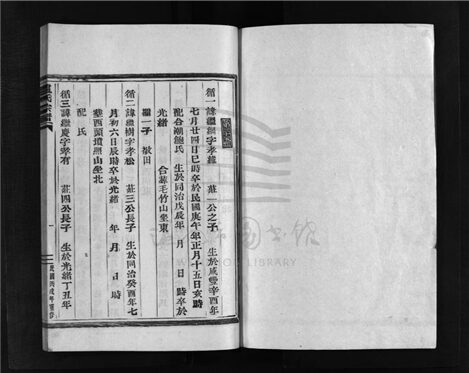 循一諱繼繼字孝維　莊一公之子　生於咸豐辛酉年
七月廿四日巳時卒於民國庚午年正月十五日亥時
配合湖鮑氏　生於同治戊辰年　月　日　時卒於
光緒　合葬毛竹山坐東
繼一子
循二諱繼樹字孝松　莊三公長子　生於同治癸酉年七
月初六日辰時卒於光緒　年　月　日　時
葬西頭墳熈山坐北
配　氏
循三諱繼慶字孝有　莊四公長子　生於光緒丁丑年
民國丙戌年重修
LIBRARY